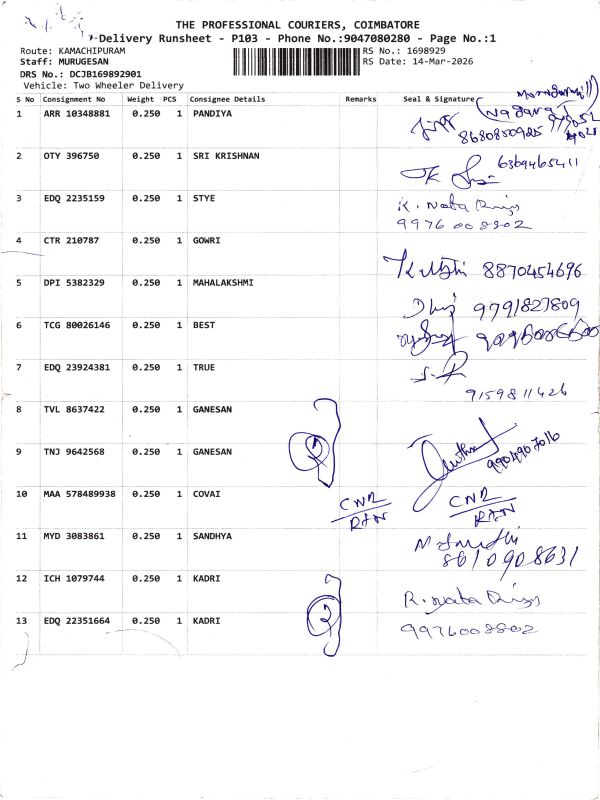 THE PROFESSIONAL COURIERS, COIMBATORE
Delivery Runsheet - P103 - Phone No.:9047080280 - Page No.:1
Route: KAMACHIPURAM
RS No.: 1698929
Staff: MURUGESAN
RS Date: 14-Mar-2026
DRS No.: DCJB169892901
Vehicle: Two Wheeler Delivery
S No Consignment No Weight PCS Consignee Details Remarks Seal & Signature
1 ARR 10348881 0.250 1 PANDIYA
8680850925
2 OTY 396750 0.250 1 SRI KRISHNAN 6369465411
3 EDQ 2235159 0.250 1 STYE K. Nata
9976008802
4 CTR 210787 0.250 1 GOWRI
8870454696
5 DPI 5382329 0.250 1 MAHALAKSHMI
9791827809
6 TCG 80026146 0.250 1 BEST
7 EDQ 23924381 0.250 1 TRUE
9159811426
8 TVL 8637422 0.250 1 GANESAN
9 TNJ 9642568 0.250 1 GANESAN 2
9904907016
10 MAA 578489938 0.250 1 COVAI CNR CNR
11 MYD 3083861 0.250 1 SANDHYA
8610908631
12 ICH 1079744 0.250 1 KADRI R. Nata
13 EDQ 22351664 0.250 1 KADRI 2 9976008802